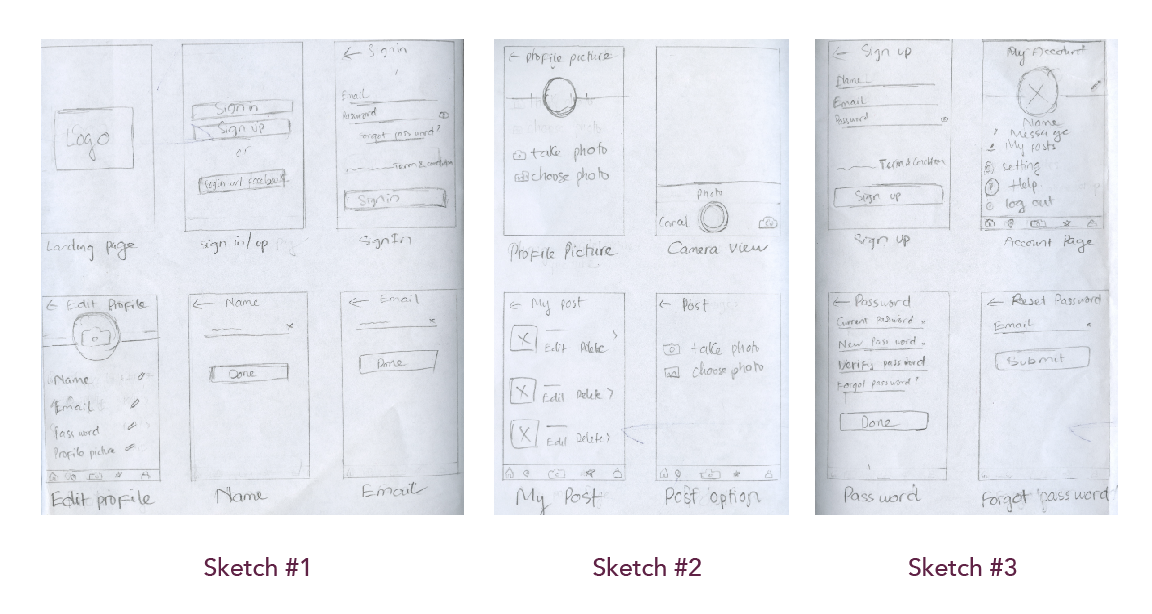 Logo
Landing page
Sign in
Sign up
or
Sign in/up
← Sign in
Email
Password
Forgot password?
Sign in
Sign In
← Edit Profile
Name
Email
Password
Profile picture
Edit profile
← Name
Done
Name
← Email
Done
Email
Sketch #1
← Profile picture
take photo
choose photo
Profile Picture
Photo
Camera View
← My post
Edit Delete >
Edit Delete >
Edit Delete >
My Post
← Post
take photo
choose photo
Post option
Sketch #2
← Sign up
Name
Email
Password
Sign up
Sign up
My Account
Name
Message
My posts
setting
Help
log out
Account Page
← Password
Current password
New Password
Verify password
Forgot password?
Done
Password
← Reset Password
Email
Submit
Forgot password
Sketch #3